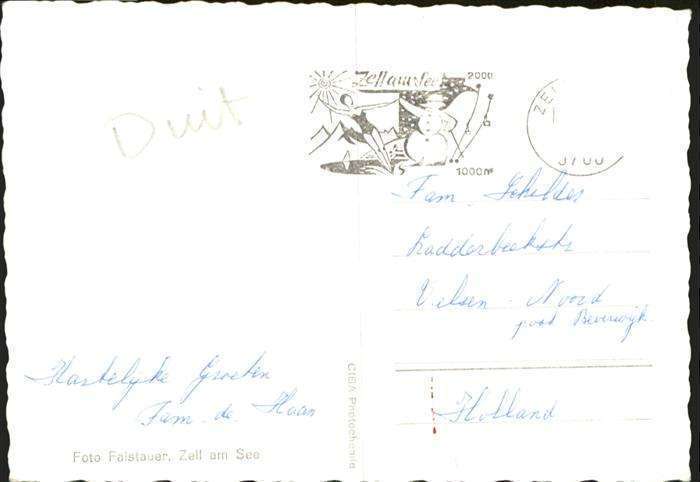 Duit
Zell am See
2000
1000m
ZE
5700
Fam. Schilder
Ladderbeekstr
Velsen-Noord
post Beverwijk
Hartelijke Groeten
Fam. de Haan
Holland
CIBA Photochemie
Foto Falstauer, Zell am See